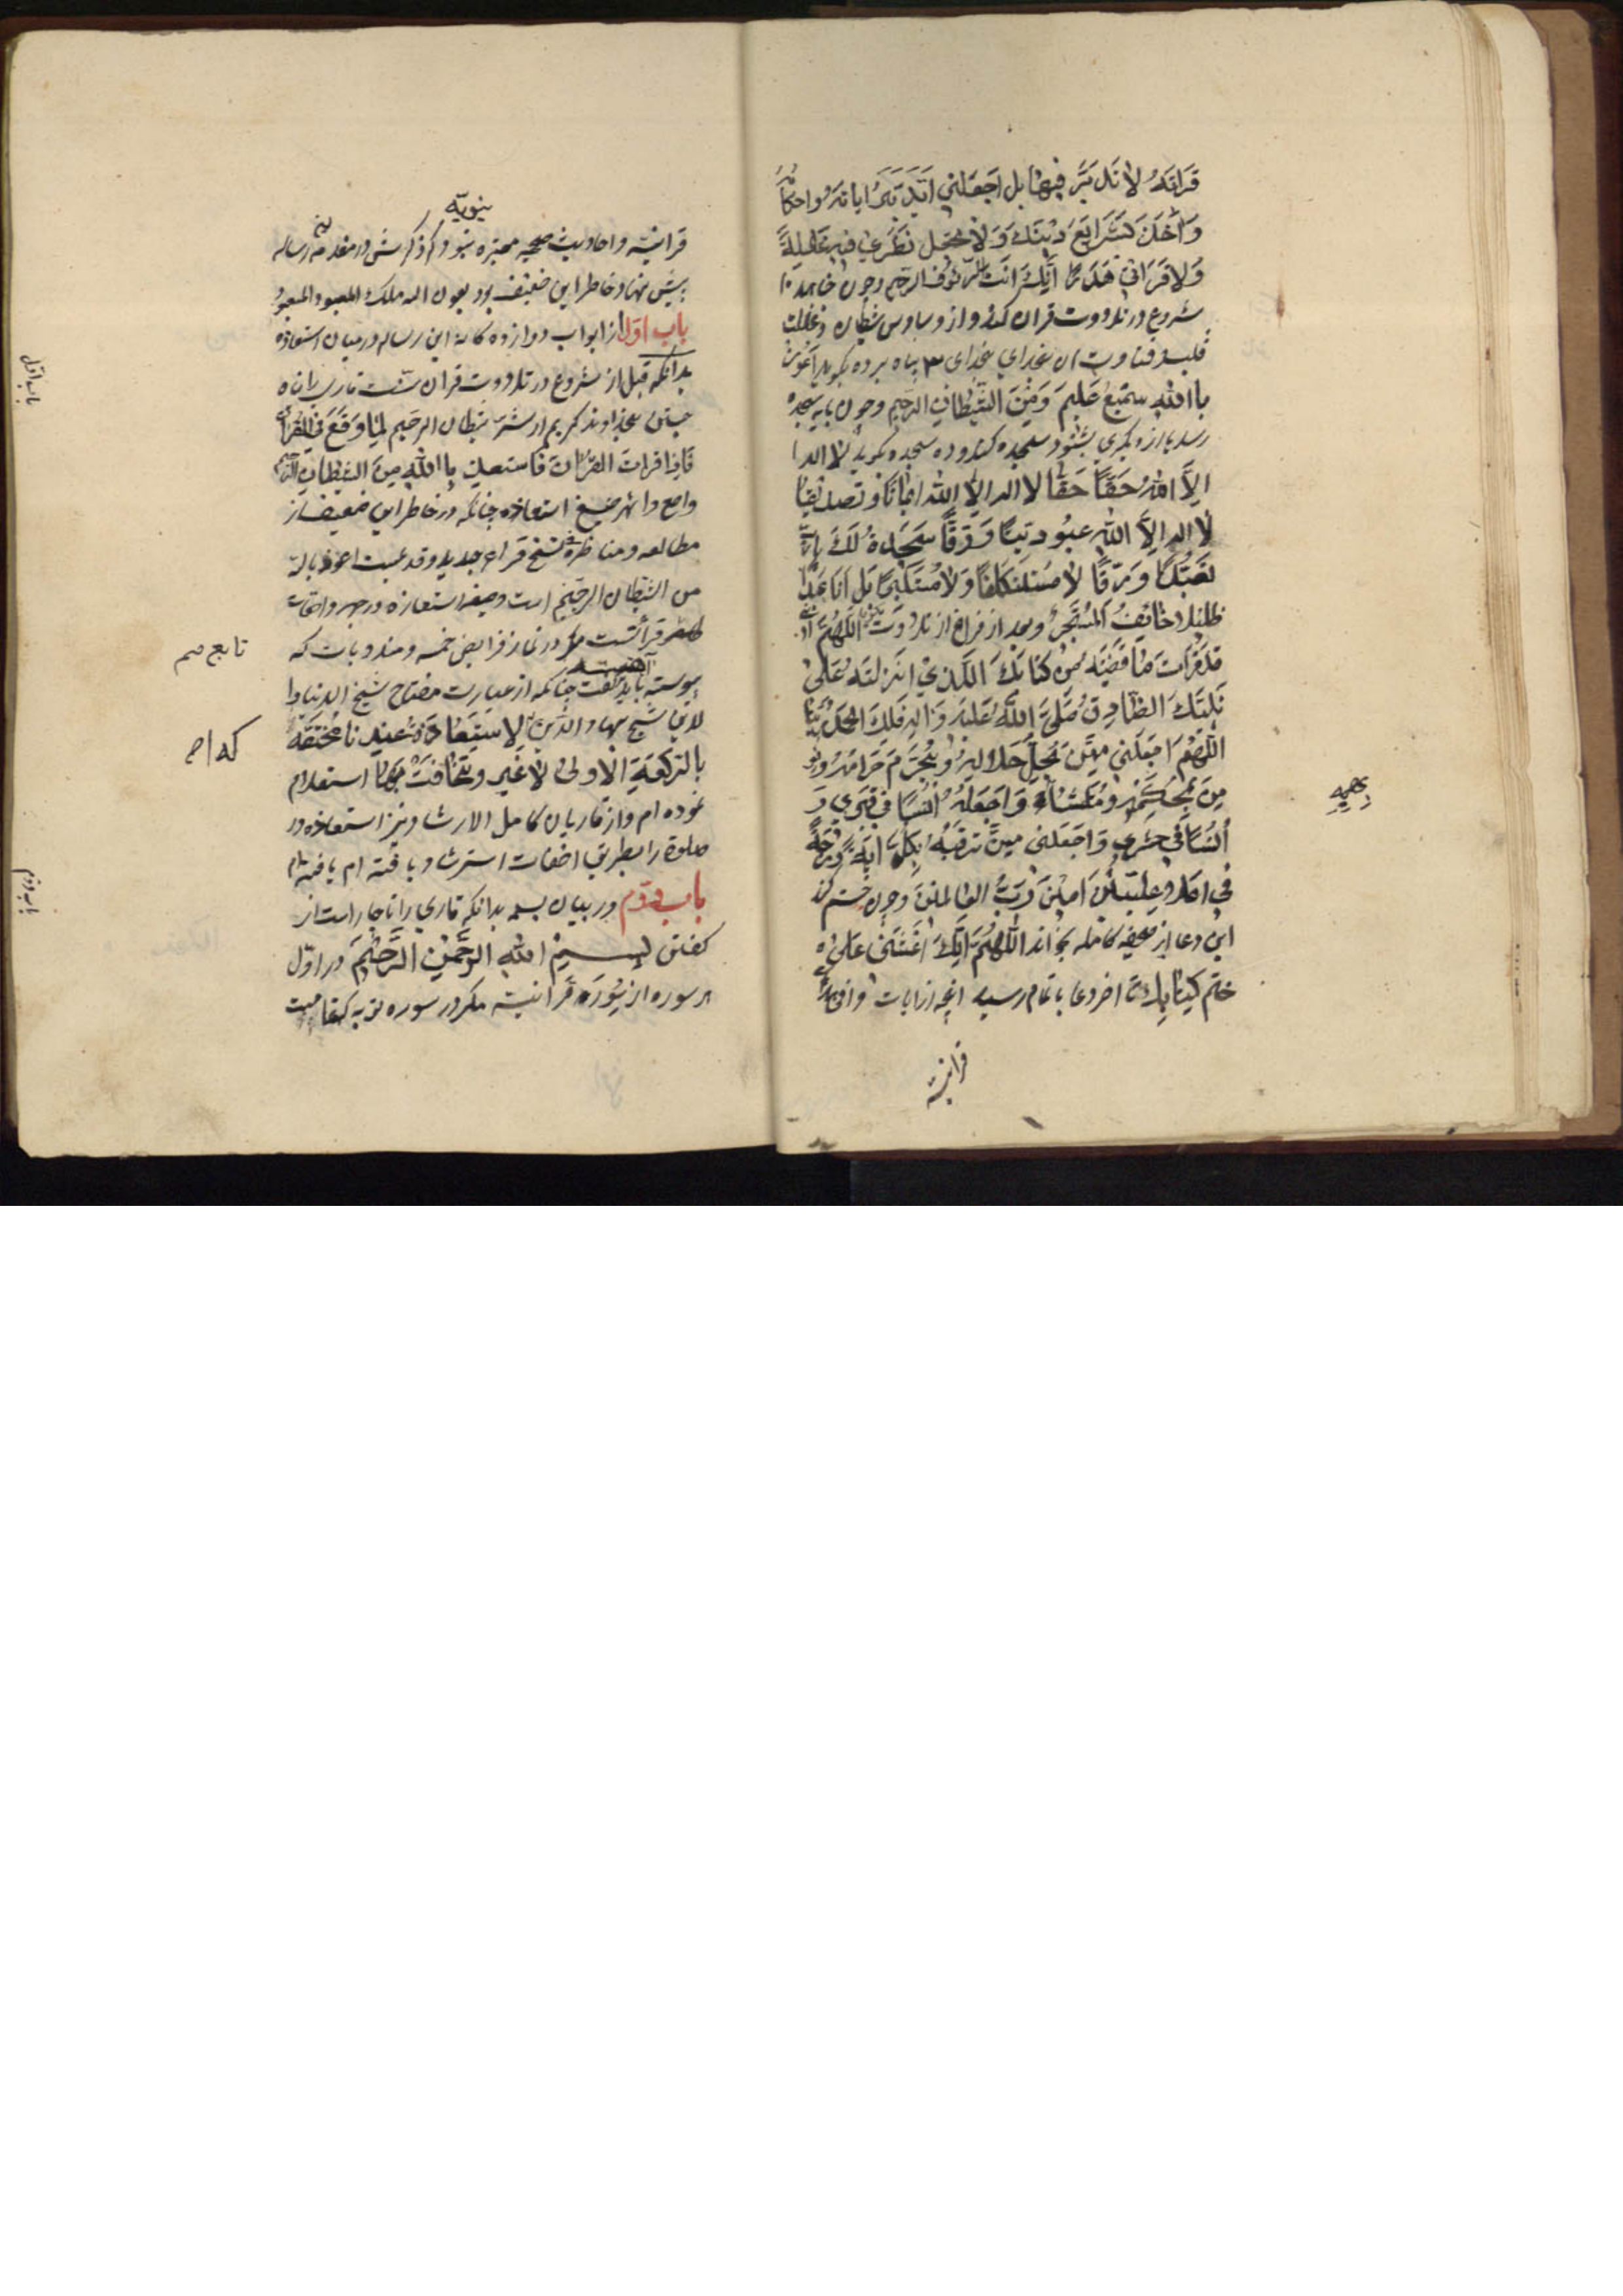 قرائته لا تدبر فیها بل اجعلنی اتدبر ایاته و احکامه
واخذ شرایع دینک و لا تجعل نظری فیه غفلة
ولا قرائتی هذرا انک انت الرؤف الرحیم و چون خواهد تا
شروع در تلاووت قران کند و از وساوس شیطان و غفلت
قلب بخدای پناه برده بکوید اعوذ
باالله سمیع علیم ومن الشیطان الرجیم و چون بایه سجده
رسد یا از دیکری بشنود سجده کند و در سجده بکوید لا اله
الا الله حقا حقا لا اله الا الله ایمانا و تصدیقا
لا اله الا الله عبودیتا و رقا سجدة لک یا رب
تعبدا و رقا لا مستنکفا ولا مستکبرا بل انا عبد
ذلیل خائف المستجیر و بعد از فراغ از تلاووت اللهم انی
قد قرات ما قضیته من کتابک الذی انزلته علی
نبیک الصادق صلی الله علیه واله فلک الحمد ربنا
اللهم اجعلنی ممن یحل حلاله و یحرم حرامه و یؤ
من بمحکمه و متشابه و اجعله انسا فی قبری و
انسا فی حشری و اجعلنی ممن ترقیه بکل ایة درجة
فی اعلا علیین امین رب العالمین و چون ختم کند
این دعا از صحیفه کامله بخواند اللهم انک اعنتنی علی
ختم کتابک تا اخر دعا باتمام رسید انچه از ایات
قرانیته
نبویه
قرانیته و احادیث صحیحه معتبره نبو که ذکرش در مقدمه رساله
پیش نهاد خاطر این ضعیف بود بعون اله ملک المعبود
باب اول از ابواب دوازده کانه این رساله در بیان استعاذه
بدانکه قبل از شروع در تلاووت قران سنت قاری را پناه
جستن بخداوند کریم از شر شیطان الرجیم لما وقع فی القران
فاذا قرات القران فاستعذ باالله من الشیطان الرجیم
واصح و اشهر صیغ استعاذه چنانکه در خاطر این ضعیف از
مطالعه و مناظره نسخ قراء جدید و قدیمست اعوذ بالله
من الشیطان الرجیم است و صیغه استعاذه در جهر و اخفات
قرائتست مکر در نماز فرایض خمسه و مندوبات که
پیوسته اهسته باید کفت چنانکه از عبارت مفتاح شیخ الدنیا وا
لدین شیخ بهاء الدین الاستعاذة عندنا مختصة
بالرکعة الاولی لا غیر و یخافت بها استعلام
نموده ام و از قاریان کامل الارشاد نیز استعاذه در
صلوة را بطریق اخفات استرشاد یافته ام
باب دوم در بیان بسمه بدانکه قاری را ناچار است از
کفتن بسم الله الرحمن الرحیم در اول
هر سوره از سوره قرانیته مکر در سوره توبه که
تابع
باب اول
باب دوم